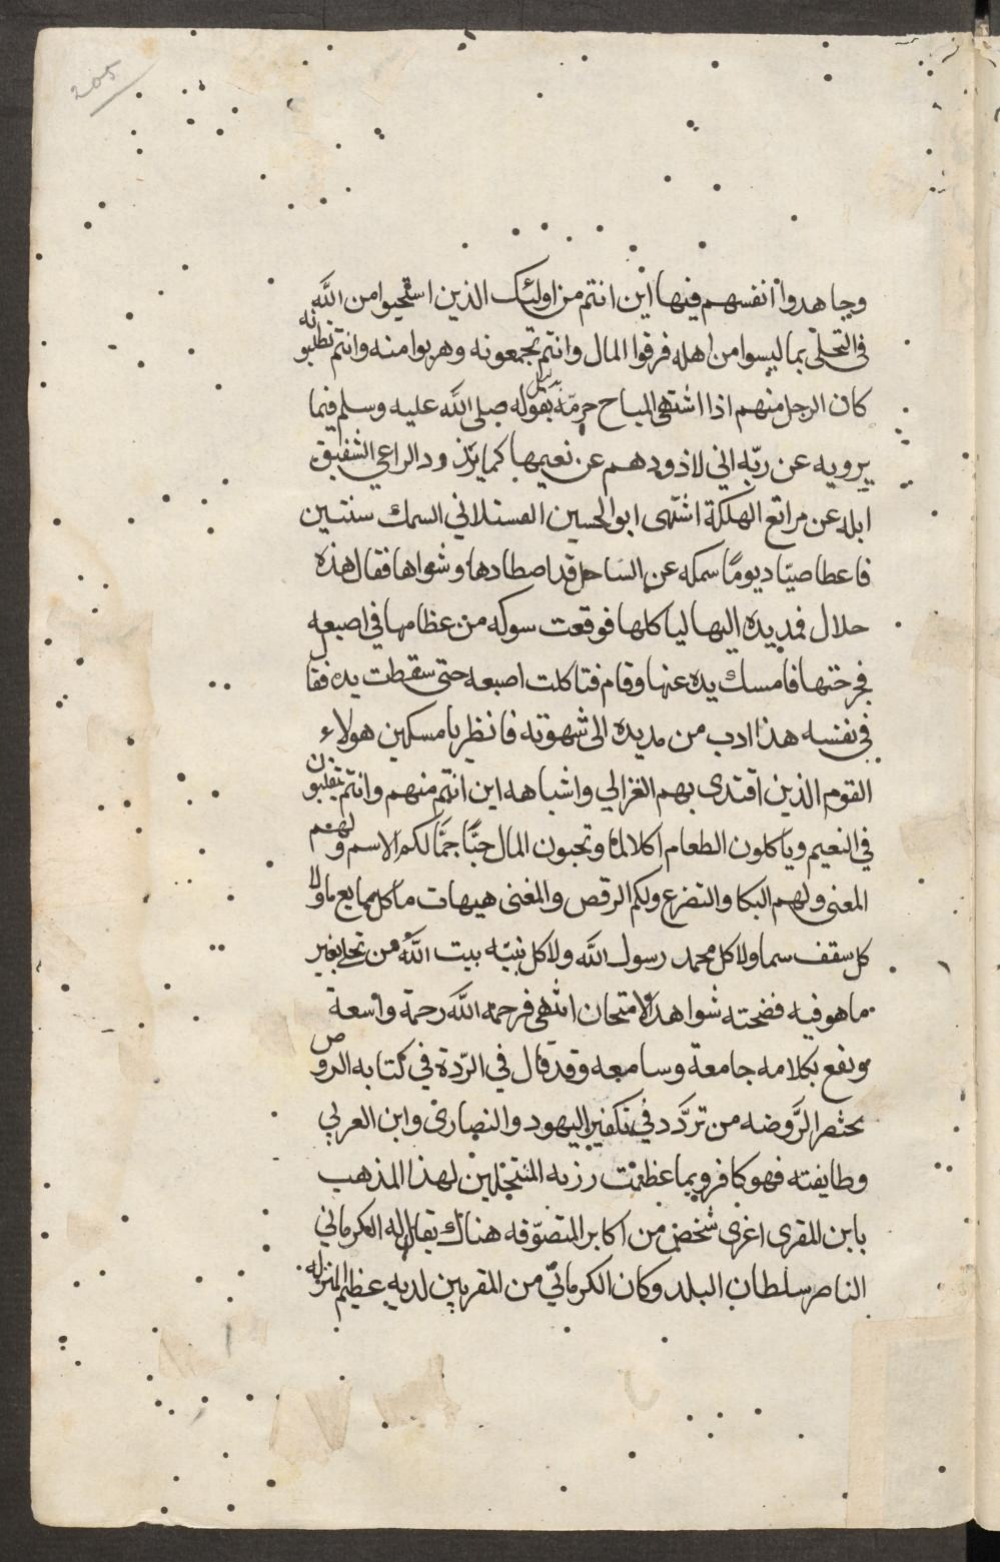 205
وجاهدوا انفسهم فيها اين انتم من اولئك الذين استحيوا من الله
في التحلي بما ليسوا من اهله فرقوا المال وانتم تجمعونه وهربوا منه وانتم تطلبونه
كان الرجل منهم اذا اشتهى المباح حرمّه بقوله صلى الله عليه وسلم فيما
يرويه عن ربّه اني لاذودهم عن نعيمها كما يذود الراعي الشفيق
ابله عن مراتع الهلكة اشتهى ابو الحسين العسقلاني السمك سنتين
فاعطا صيّاد يومًا سمكه عن الساحل قد اصطادها وشواها فقال هذه
حلال فمد يده اليها لياكلها فوقعت سوكه من عظامها في اصبعه
فجرحتها فامسك يده عنها وقام فتاكلت اصبعه حتى سقطت يده فقا
في نفسه هذا ادب من مد يده الى شهوته فانظر يا مسكين هولاء
القوم الذين اقتدى بهم الغزالي واشباهه اين انتم منهم وانتم تتقلبون
في النعيم وياكلون الطعام اكلا لمّا وتحبون المال حبًّا جمًّا لكم الاسم ولهم
المعنى ولهم البكا والتضرع ولكم الرقص والمغنى هيهات ما كل مايع ماولا
كل سقف سما ولا كل محمد رسول الله ولا كل بنيّه بيت الله من تحلى بغير
ما هو فيه فضحته شواهد الامتحان انتهى فرحمه الله رحمة واسعة
ونفع بكلامه جامعة وسامعه وقد قال في الردّة في كتابه الروض
مختصر الروضه من تردّد في تكفير اليهود والنصارى وابن العربي
وطايفته فهو كافر وبما عظمت رزيه المنتحلين لهذا المذهب
بابن المقرى اغرى شخص من اكابر المتصوّفه هناك يقال له الكرماني
الناصر سلطان البلد وكان الكرماني من المقربين لديه عظيم المنزله